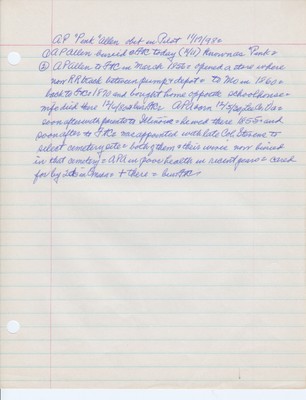 AP "Pink" Allen obit in Pilot 11/19/98=
① AP Allen buried @ FC today (4/11) Known as "Pink"=
② AP Allen to FC in March 1856= opened a store where
now RR track between pump + depot= to Mo in 1860=
back to FC= 1870 and bought home opposite schoolhouse=
wife died there AP born
soon afterwards parents to Illinois= he wed there 1855= and
soon after to FC= was appointed with late Col Stone to
select cemetery site= both of them + their wives now buried
in that cemetery= AP in poor health in recent years= cared
for by